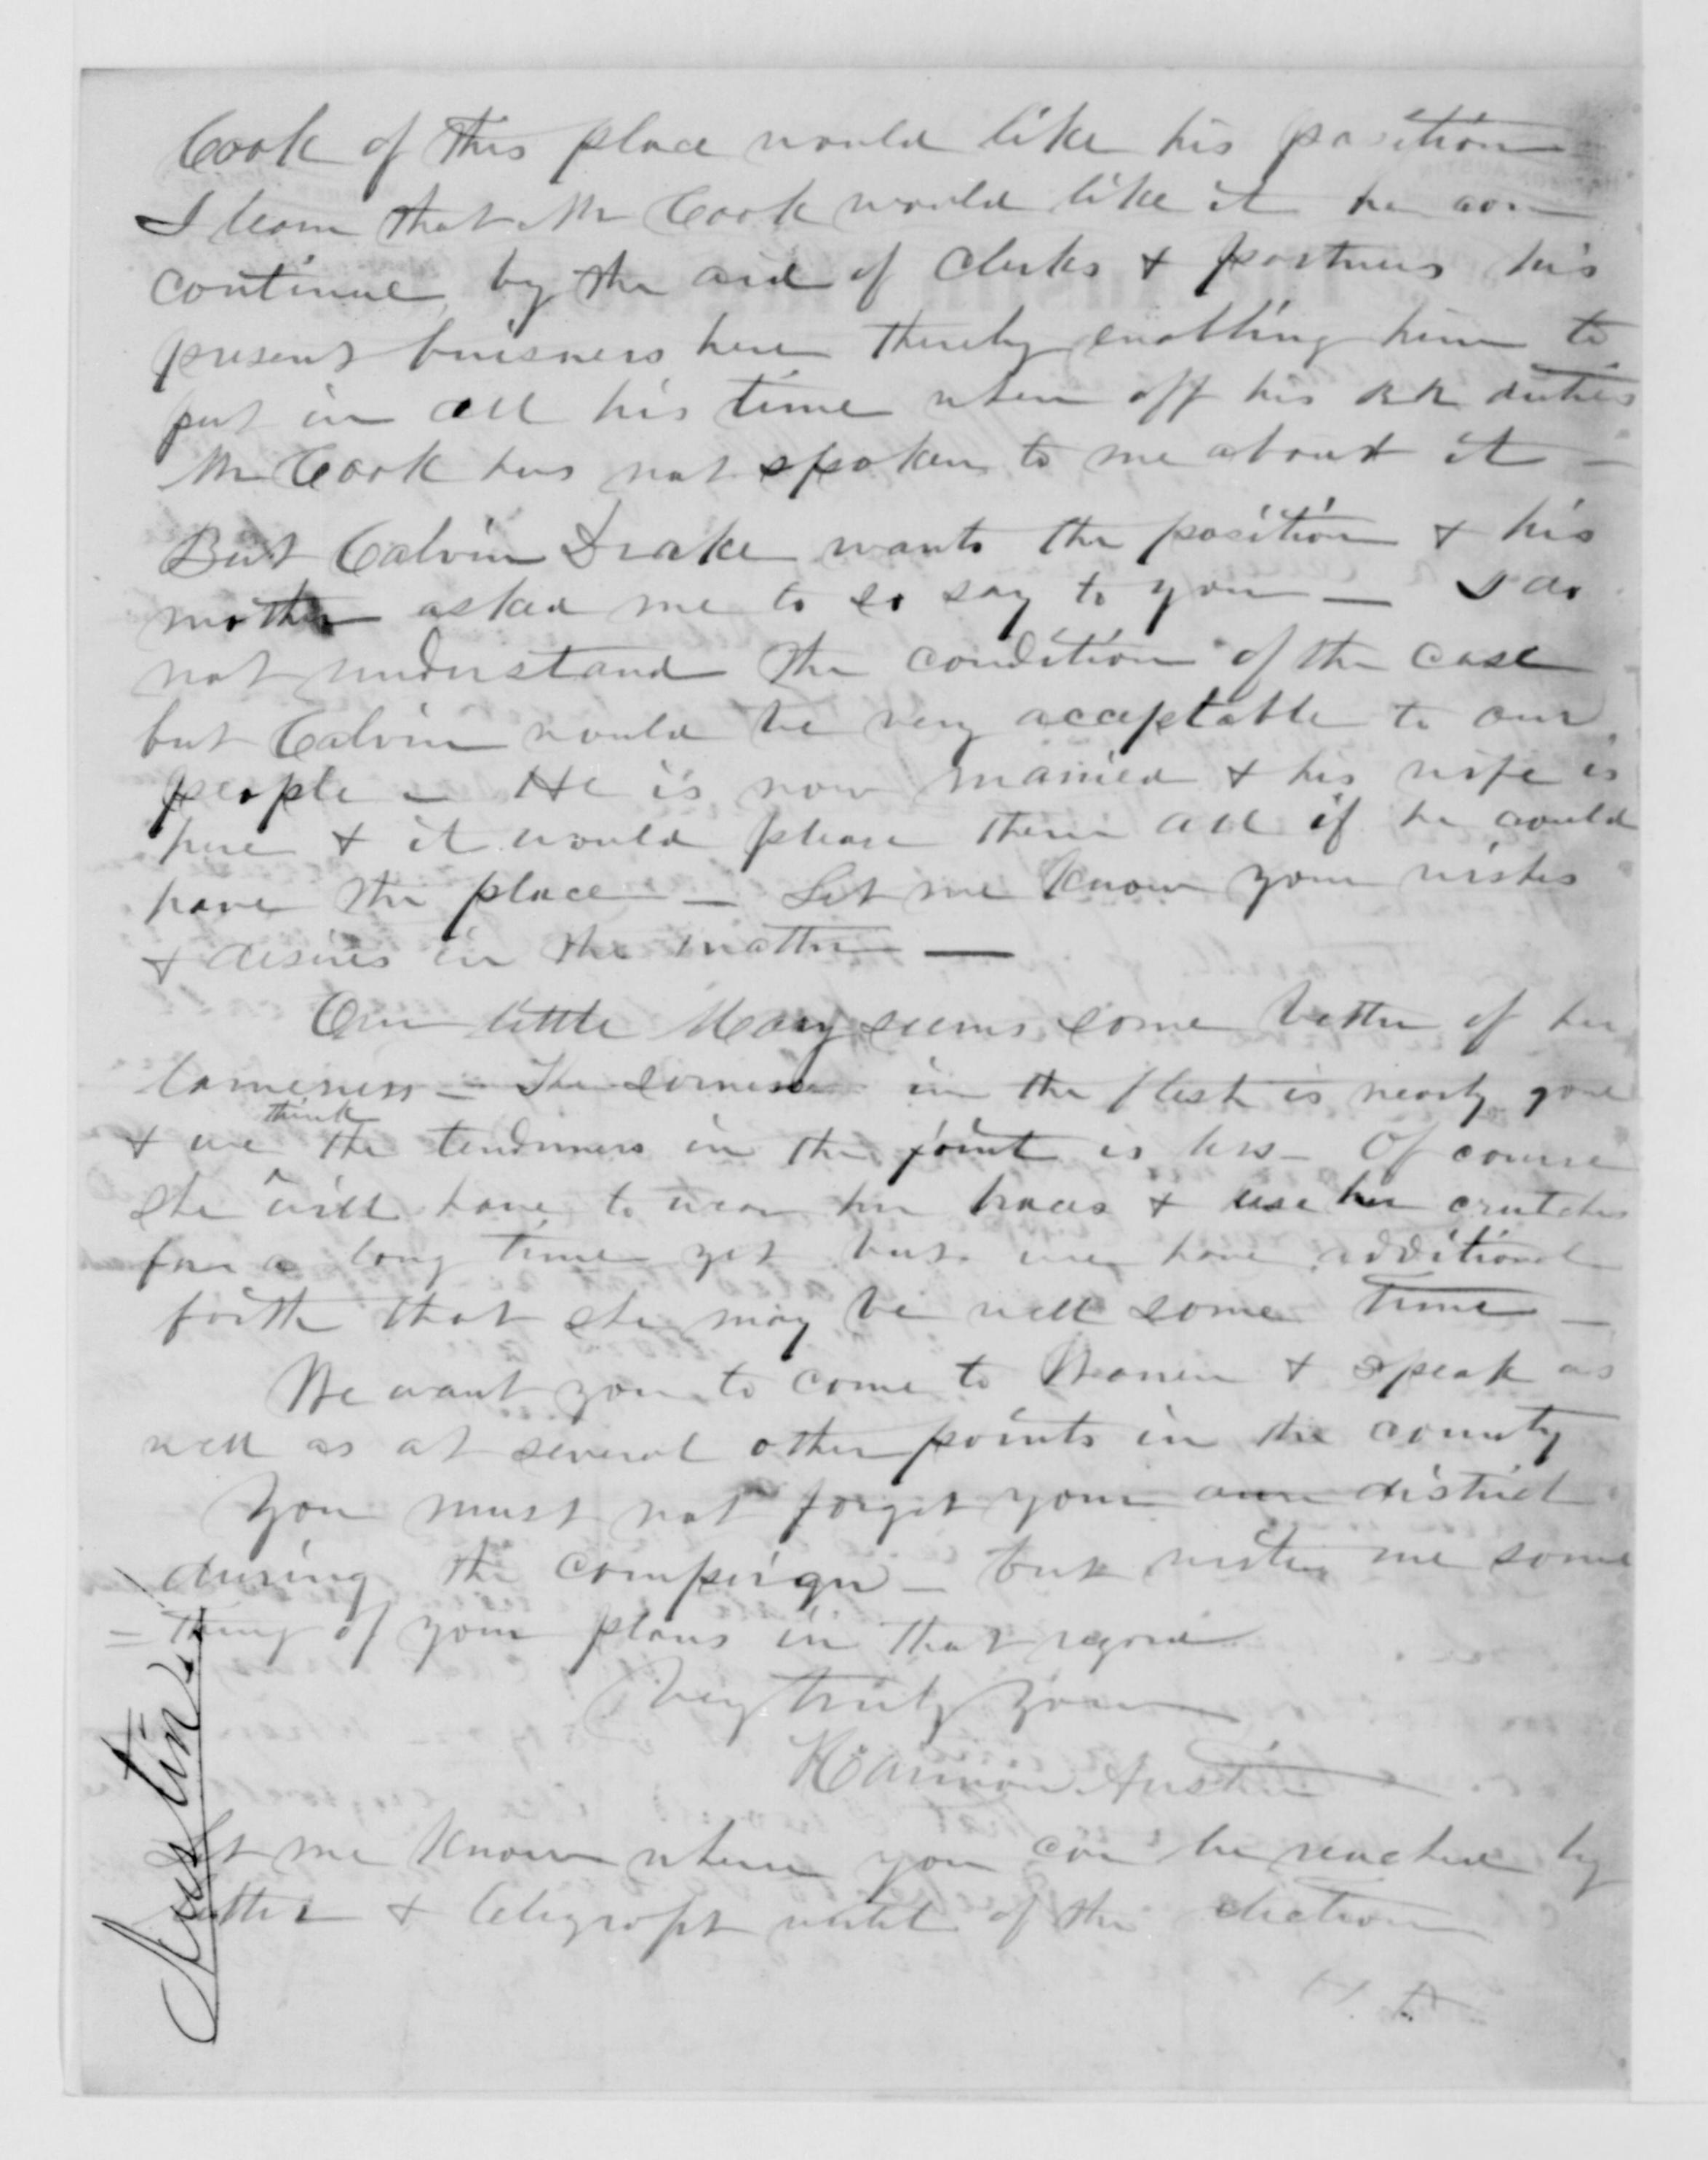 Cook of this place would like his position
I learn that Mr Cook would like it he can
continue by the aid of clerks & partners his
present buisness here thereby enabling him to
put in all his time when off his RR duties
Mr Cook has not spoken to me about it —
But Calvin Drake wants the position & his
mother asked me to so say to you — I do
not understand the condition of the case
but Calvin would be very acceptable to our
people — He is now married & his wife is
here & it would please them all if he could
have the place — Let me know your wishes
& desires in the matter —
Our little Mary seems some better of her
lameness — The soreness in the flesh is nearly gone
& we think the tenderness in the joint is less — Of course
she will have to wear her braces & use her crutches
for a long time yet but we have additional
faith that she may be well some time —
We want you to come to Warren & speak as
well as at several other points in the county
You must not forget your own district
during the campaign — but write me some
= thing of your plans in that regard
Very truly yours
Harmon Austin
Let me know where you can be reached by
letter & telegraph until of the election
H. A.
Austin